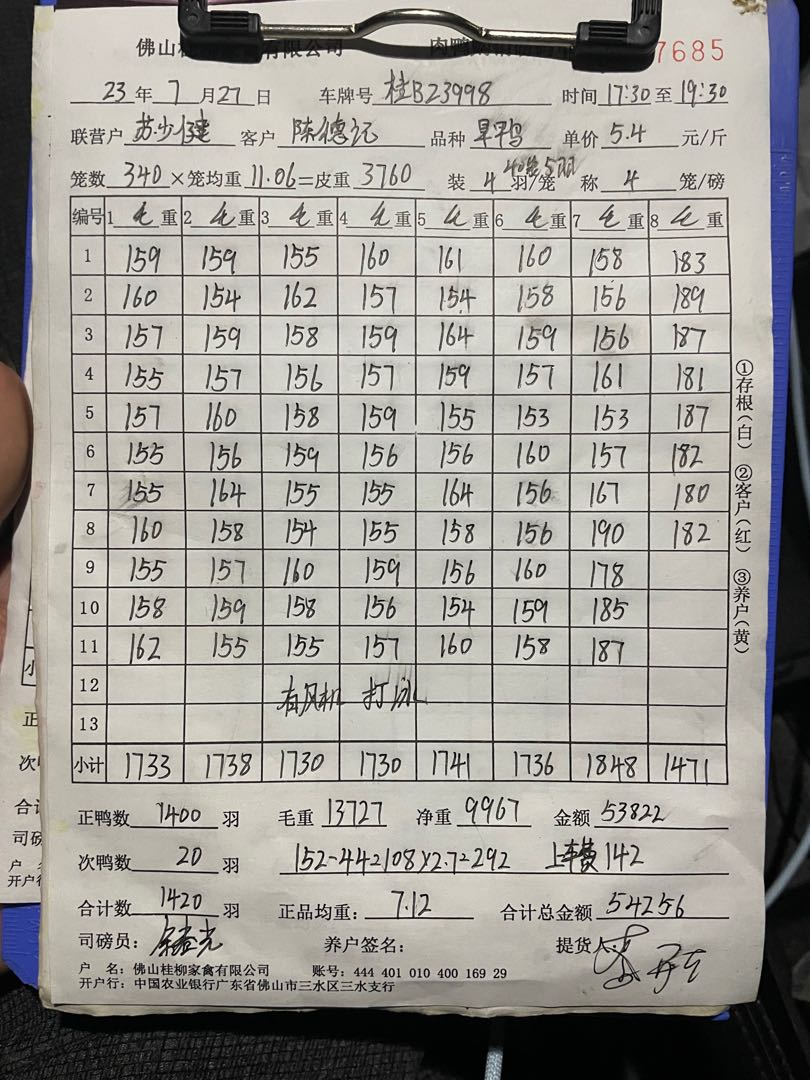 佛山桂 有限公司 肉鸭 7685
23年 7月27日 车牌号 桂B23998 时间 17:30 至 19:30
联营户 苏少健 客户 陈德记 品种 旱鸭 单价 5.4 元/斤
40笼5羽
笼数 340 ×笼均重 11.06=皮重 3760 装 4 羽/笼 称 4 笼/磅
编号 1 毛重 2 毛重 3 毛重 4 毛重 5 毛重 6 毛重 7 毛重 8 毛重
1 159 159 155 160 161 160 158 183
2 160 154 162 157 154 158 156 189
3 157 159 158 159 164 159 156 187
4 155 157 156 157 159 157 161 181
5 157 160 158 159 155 153 153 187
6 155 156 159 156 156 160 157 182
7 155 164 155 155 164 156 167 180
8 160 158 154 155 158 156 190 182
9 155 157 160 159 156 160 178
10 158 159 158 156 154 159 185
11 162 155 155 157 160 158 187
12 有风机 打冰
13
小计 1733 1738 1730 1730 1741 1736 1848 1471
正鸭数 1400 羽 毛重 13727 净重 9967 金额 53822
次鸭数 20 羽 152-44=108×2.7=292 上车费 142
合计数 1420 羽 正品均重: 7.12 合计总金额 54256
司磅员: 养户签名: 提货人
户 名: 佛山桂柳家禽有限公司 账号: 444 401 010 400 169 29
开户行: 中国农业银行广东省佛山市三水区三水支行
①存根(白) ②客户(红) ③养户(黄)
小
正
次
合计
司磅
户
开户行